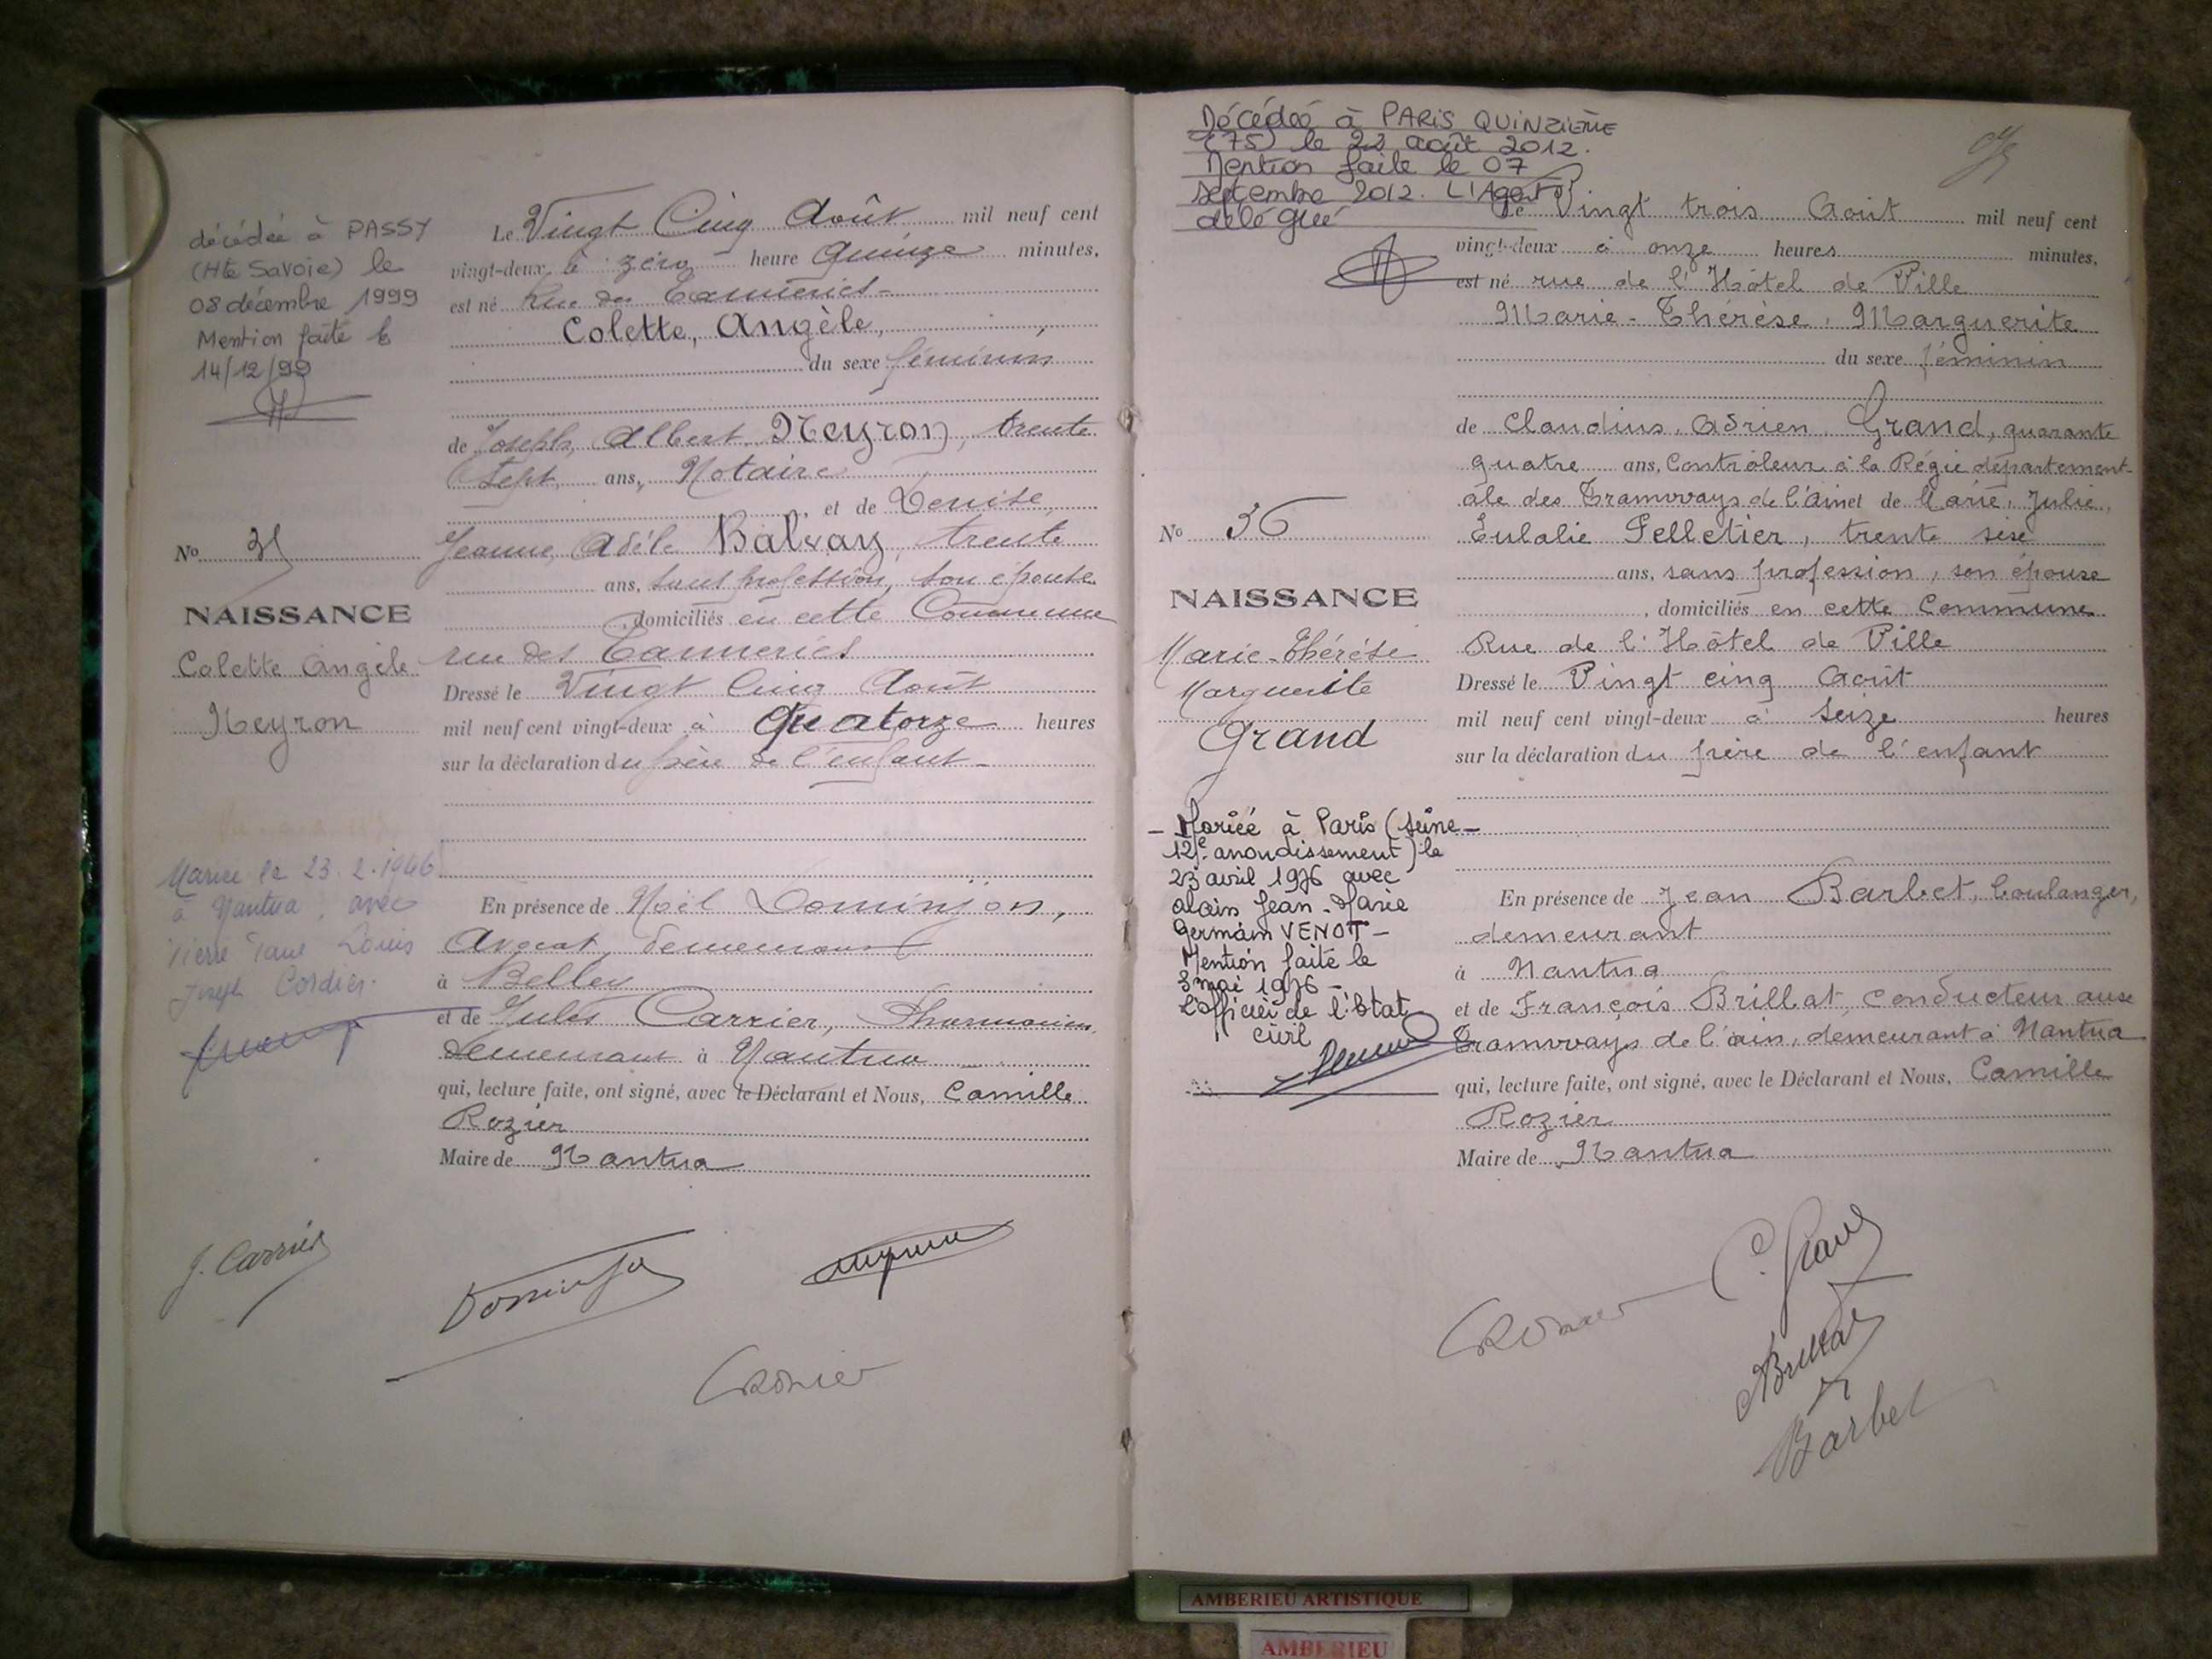 décédée à PASSY
(Hte Savoie) le
08 décembre 1999
Mention faite le
14/12/99
No 35
NAISSANCE
Colette Angèle
Neyron
Mariée le 23.2.1946
à Nantua, avec
Pierre Paul Louis
Joseph Cordier.
Le Vingt Cinq Août mil neuf cent
vingt-deux, à zéro heure quinze minutes,
est né Rue des Tanneries
Colette, Angèle,
du sexe féminin
de Joseph, Albert Neyron, trente
sept ans, Notaire
, et de Denise,
Jeanne, Adèle Balvay, trente
ans, sans profession, son épouse
, domiciliés en cette Commune
rue des Tanneries
Dressé le Vingt Cinq Août
mil neuf cent vingt-deux à Quatorze heures
sur la déclaration du père de l'enfant
En présence de Noël Dominjon,
Avocat, demeurant
à Belley
et de Jules Carrier, Pharmacien,
demeurant à Nantua
qui, lecture faite, ont signé, avec le Déclarant et Nous, Camille
Rozier
Maire de Nantua
J. Carrier
Dominjon
CRozier
Décédée à PARIS QUINZIEME
(75) le 23 août 2012.
Mention faite le 07
septembre 2012. L'Agent
délégué
No 36
NAISSANCE
Marie-Thérèse
Marguerite
Grand
- Mariée à Paris (Seine -
12e arrondissement) le
23 avril 1976 avec
Alain Jean-Marie
Germain VENOT -
Mention faite le
3 mai 1976 -
L'officier de l'Etat
civil
Le Vingt trois Août mil neuf cent
vingt-deux à onze heures minutes,
est né rue de l'Hôtel de Ville
Marie-Thérèse, Marguerite
du sexe féminin
de Claudius, Adrien, Grand, quarante
quatre ans, Contrôleur à la Régie département-
ale des Tramways de l'Ain et de Marie, Julie,
Eulalie Pelletier, trente six
ans, sans profession, son épouse
, domiciliés en cette Commune
Rue de l'Hôtel de Ville
Dressé le Vingt cinq Août
mil neuf cent vingt-deux à seize heures
sur la déclaration du père de l'enfant
En présence de Jean Barbet, boulanger,
demeurant
à Nantua
et de François Brillat, conducteur aux
Tramways de l'ain, demeurant à Nantua
qui, lecture faite, ont signé, avec le Déclarant et Nous, Camille
Rozier
Maire de Nantua
CRozier
C. Grand
Brillat
Barbet
AMBERIEU ARTISTIQUE
AMBERIEU